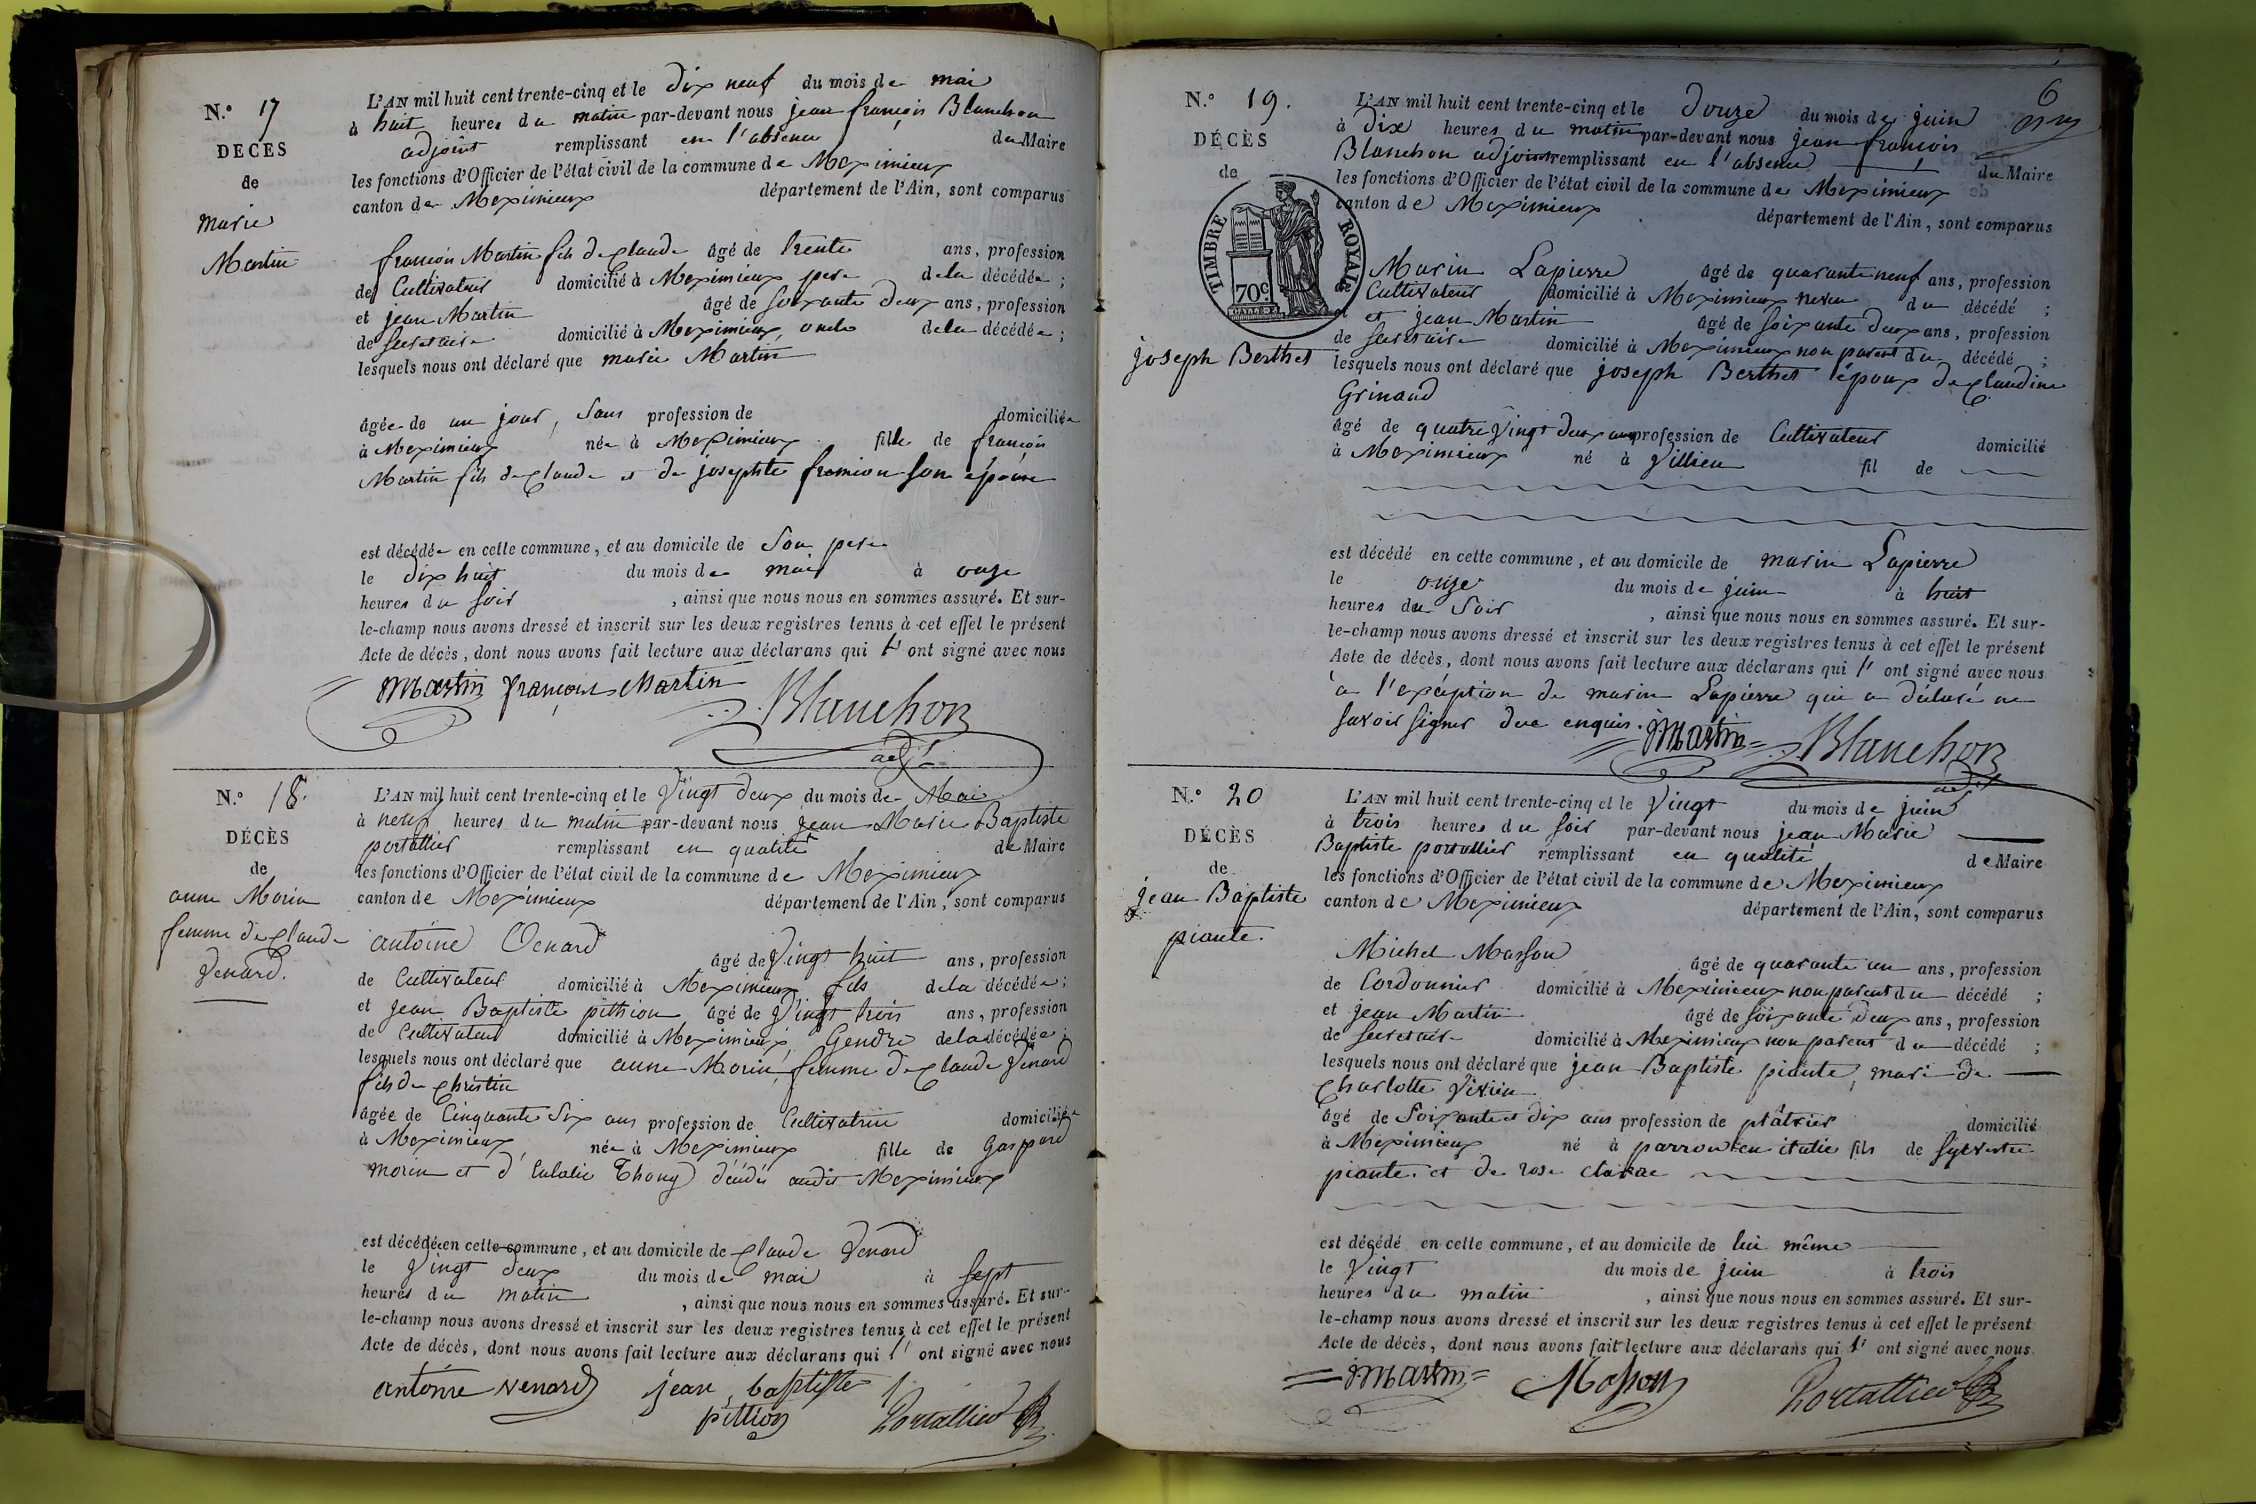 N.° 17
DÉCÈS
de
marie
Martin
L'AN mil huit cent trente-cinq et le dix neuf du mois de mai
à huit heures du matin par-devant nous jean françois Blanchon
adjoint remplissant en l'absence du Maire
les fonctions d'Officier de l'état civil de la commune de Meximieux
canton de Meximieux département de l'Ain, sont comparus
françois Martin fils de Claude âgé de trente ans, profession
de Cultivateur domicilié à Meximieux pere de la décédée ;
et jean Martin âgé de soixante deux ans, profession
de secretaire domicilié à Meximieux, oncle de la décédée ;
lesquels nous ont déclaré que marie Martin
âgée de un jour, sans profession de domiciliée
à Meximieux née à Meximieux fille de françois
Martin fils de Claude et de josephte framion son épouse
est décédée en cette commune, et au domicile de son pere
le dix huit du mois de mai à onze
heures du soir , ainsi que nous nous en sommes assuré. Et sur-
le-champ nous avons dressé et inscrit sur les deux registres tenus à cet effet le présent
Acte de décès, dont nous avons fait lecture aux déclarans qui l' ont signé avec nous
Martin françois Martin Blanchon
adjt
N.° 18.
DÉCÈS
de
anne Morin
femme de Claude
Venard.
L'AN mil huit cent trente-cinq et le Vingt deux du mois de Mai
à neuf heures du matin par-devant nous jean Marie Baptiste
portallier remplissant en qualité de Maire
les fonctions d'Officier de l'état civil de la commune de Meximieux
canton de Meximieux département de l'Ain, sont comparus
antoine Venard âgé de Vingt huit ans, profession
de Cultivateur domicilié à Meximieux fils de la décédée ;
et jean Baptiste pittion âgé de Vingt trois ans, profession
de Cultivateur domicilié à Meximieux, Gendre de la décédée ;
lesquels nous ont déclaré que anne Morin, femme de Claude Venard
fils de Christin
âgée de Cinquante Six ans profession de Cultivatrice domiciliée
à Meximieux née à Meximieux fille de Gaspard
morin et d'Eulalie Thony décédés audit Meximieux
est décédée en cette commune, et au domicile de Claude Venard
le Vingt deux du mois de mai à sept
heures du matin , ainsi que nous nous en sommes assuré. Et sur-
le-champ nous avons dressé et inscrit sur les deux registres tenus à cet effet le présent
Acte de décès, dont nous avons fait lecture aux déclarans qui l' ont signé avec nous
antoine venard jean baptiste
pittion Portallier
6
N.° 19.
DÉCÈS
de
TIMBRE ROYAL
70c
joseph Berthet
L'AN mil huit cent trente-cinq et le Douze du mois de juin
à Dix heures du matin par-devant nous jean françois
Blanchon adjoint remplissant en l'absence du Maire
les fonctions d'Officier de l'état civil de la commune de Meximieux
canton de Meximieux département de l'Ain, sont comparus
Marin Lapierre âgé de quarante neuf ans, profession
Cultivateur domicilié à Meximieux neveu du décédé ;
et jean Martin âgé de soixante deux ans, profession
de secretaire domicilié à Meximieux non parent du décédé ;
lesquels nous ont déclaré que joseph Berthet époux de Claudine
Grinand
âgé de quatre Vingt deux ans profession de Cultivateur domicilié
à Meximieux né à Villieu fil de
est décédé en cette commune, et au domicile de marin Lapierre
le onze du mois de juin à huit
heures du Soir , ainsi que nous nous en sommes assuré. Et sur-
le-champ nous avons dressé et inscrit sur les deux registres tenus à cet effet le présent
Acte de décès, dont nous avons fait lecture aux déclarans qui l' ont signé avec nous
à l'exception de marin Lapierre qui a déclaré ne
savoir signer due enquis. Martin Blanchon
adjt
N.° 20
DÉCÈS
de
jean Baptiste
piante.
L'AN mil huit cent trente-cinq et le Vingt du mois de juin
à trois heures du soir par-devant nous jean Marie
Baptiste portallier remplissant en qualité de Maire
les fonctions d'Officier de l'état civil de la commune de Meximieux
canton de Meximieux département de l'Ain, sont comparus
Michel Masson âgé de quarante un ans, profession
de Cordonnier domicilié à Meximieux non parent du décédé ;
et jean Martin âgé de soixante deux ans, profession
de secretaire domicilié à Meximieux non parent du décédé ;
lesquels nous ont déclaré que jean Baptiste piante, mari de
Charlotte Vivien
âgé de Soixante et dix ans profession de plâtrier domicilié
à Meximieux né à parron en italie fils de Sylvestre
piante et de rose
est décédé en cette commune, et au domicile de lui même
le Vingt du mois de juin à trois
heures du matin , ainsi que nous nous en sommes assuré. Et sur-
le-champ nous avons dressé et inscrit sur les deux registres tenus à cet effet le présent
Acte de décès, dont nous avons fait lecture aux déclarans qui l' ont signé avec nous
Martin Masson Portallier